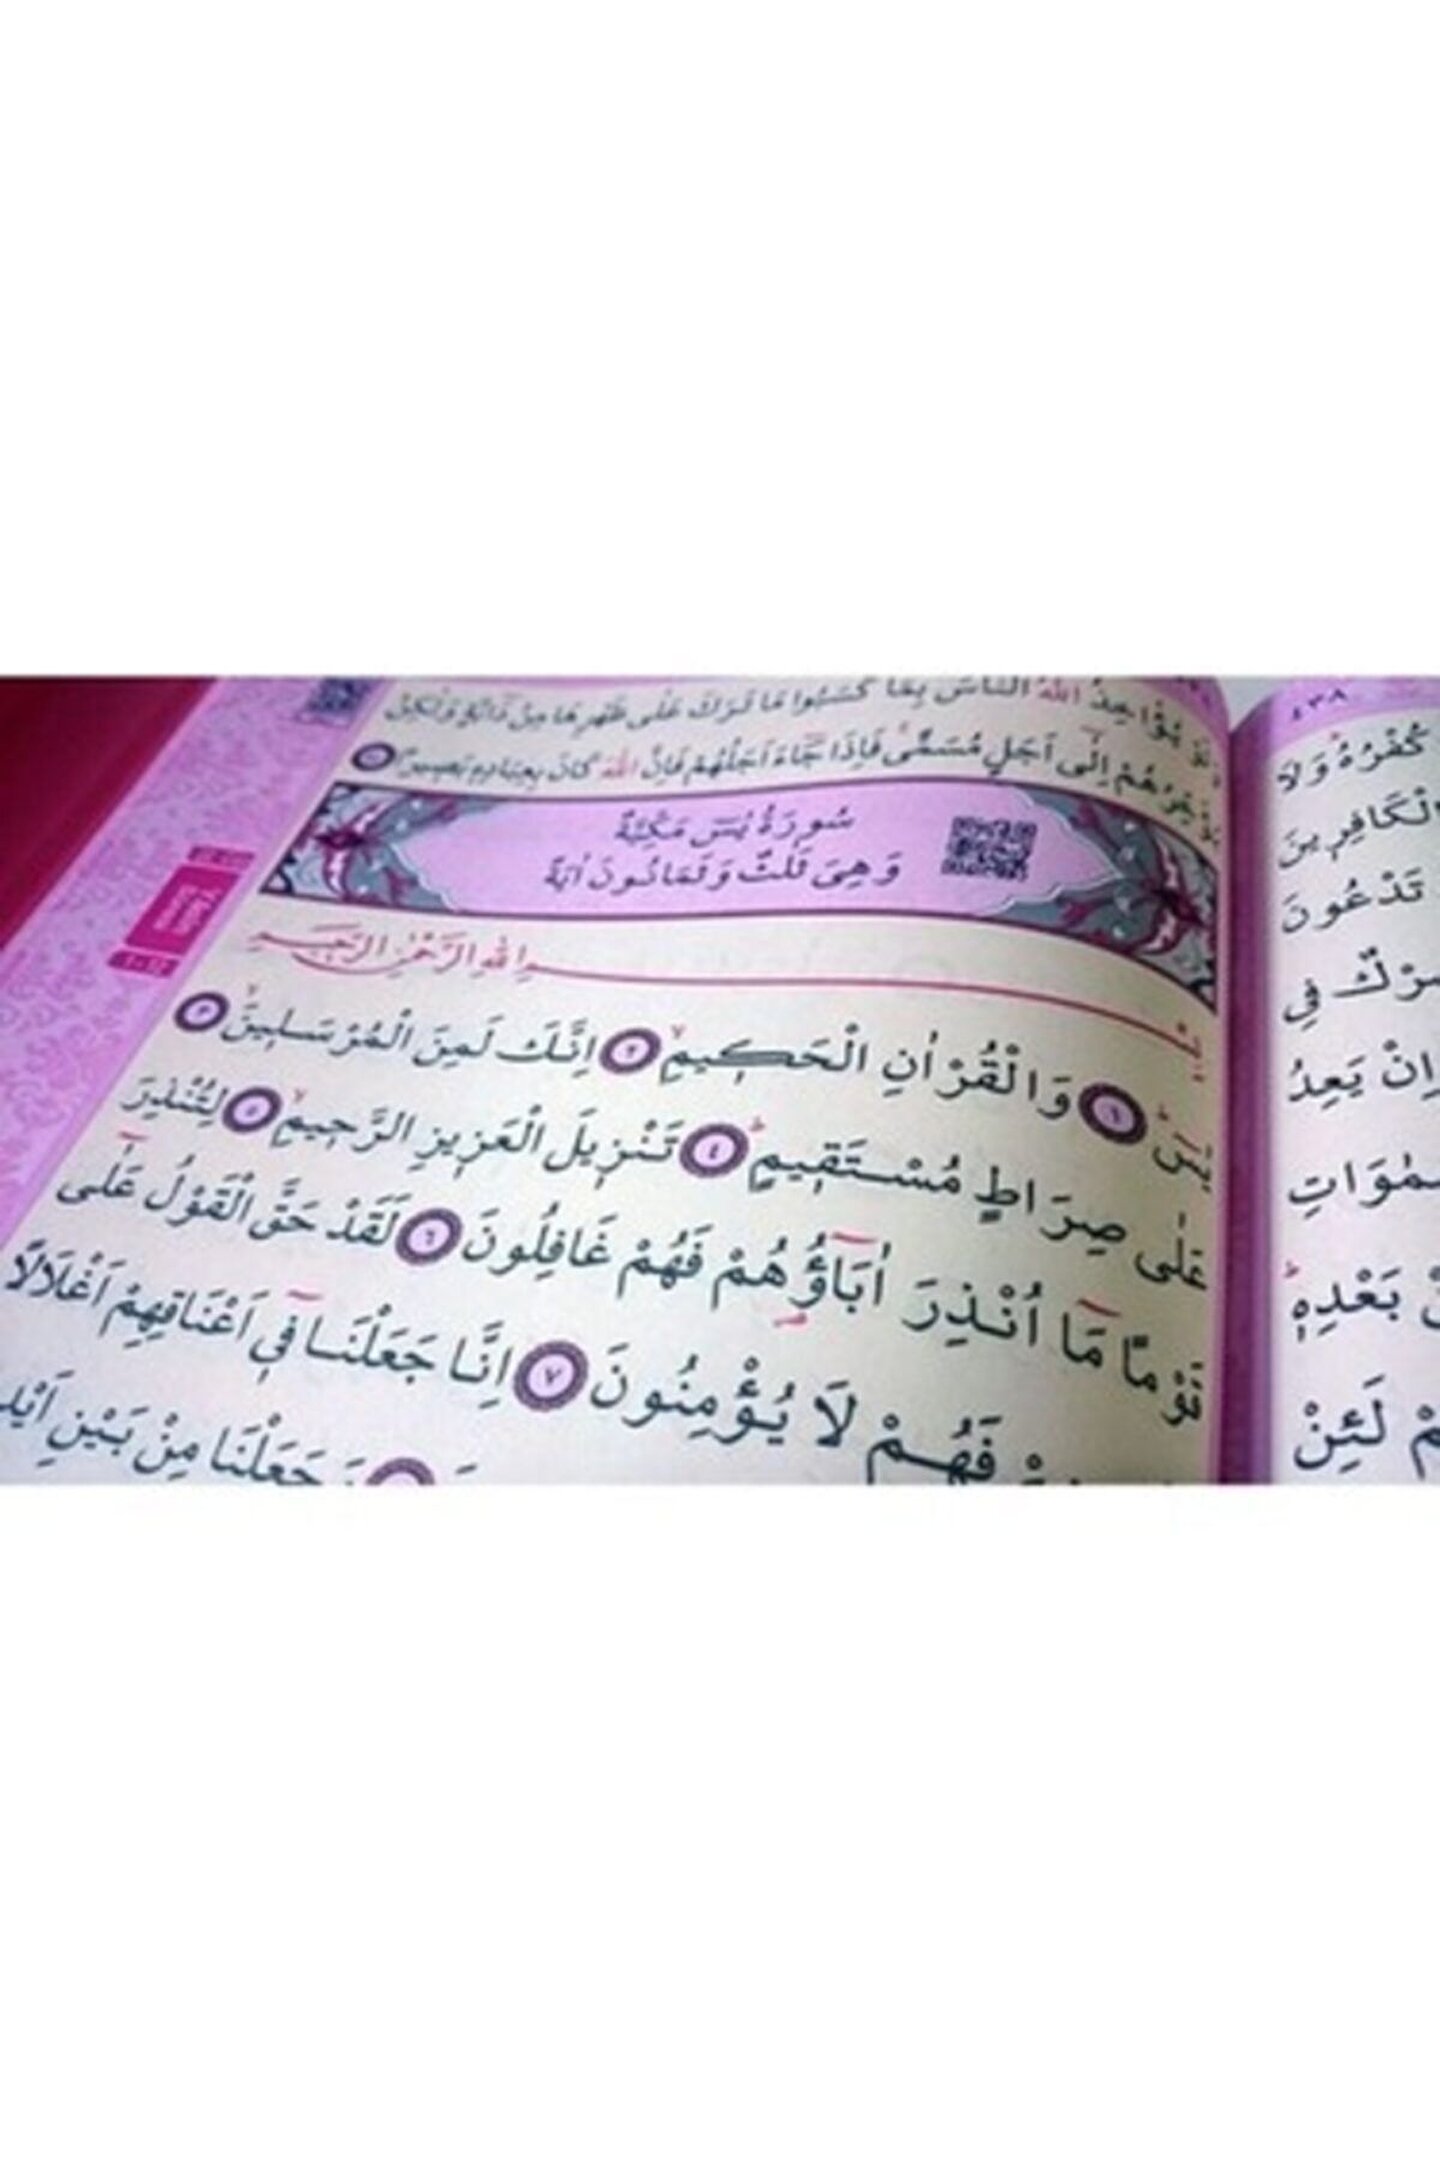 يُؤَاخِذُ اللّٰهُ النَّاسَ بِمَا كَسَبُوا مَا تَرَكَ عَلٰى ظَهْرِهَا مِنْ دَٓابَّةٍ وَلٰكِنْ
يُؤَخِّرُهُمْ اِلٰٓى اَجَلٍ مُسَمًّىۚ فَاِذَا جَٓاءَ اَجَلُهُمْ فَاِنَّ اللّٰهَ كَانَ بِعِبَادِه۪ بَص۪يراً
سُورَةُ يٰسٓ مَكِّيَّةٌ
وَهِىَ ثَلٰثٌ وَثَمَانُونَ اٰيَةً
بِسْمِ اللّٰهِ الرَّحْمٰنِ الرَّح۪يمِ
يٰسٓۜ ﴿١﴾ وَالْقُرْاٰنِ الْحَك۪يمِۙ ﴿٢﴾ اِنَّكَ لَمِنَ الْمُرْسَل۪ينَۙ ﴿٣﴾
عَلٰى صِرَاطٍ مُسْتَق۪يمٍۜ ﴿٤﴾ تَنْز۪يلَ الْعَز۪يزِ الرَّح۪يمِۙ ﴿٥﴾ لِتُنْذِرَ
قَوْماً مَٓا اُنْذِرَ اٰبَٓاؤُ۬هُمْ فَهُمْ غَافِلُونَ ﴿٦﴾ لَقَدْ حَقَّ الْقَوْلُ عَلٰٓى
فَهُمْ لَا يُؤْمِنُونَ ﴿٧﴾ اِنَّا جَعَلْنَا ف۪ٓي اَعْنَاقِهِمْ اَغْلَالاً
جَعَلْنَا مِنْ بَيْنِ
٤٣٨
كُفْرُهُ وَلَا
الْكَافِر۪ينَ
تَدْعُونَ
شِرْكٌ فِي
اِنْ يَعِدُ
بَعْدِه۪ۜ
لَئِنْ